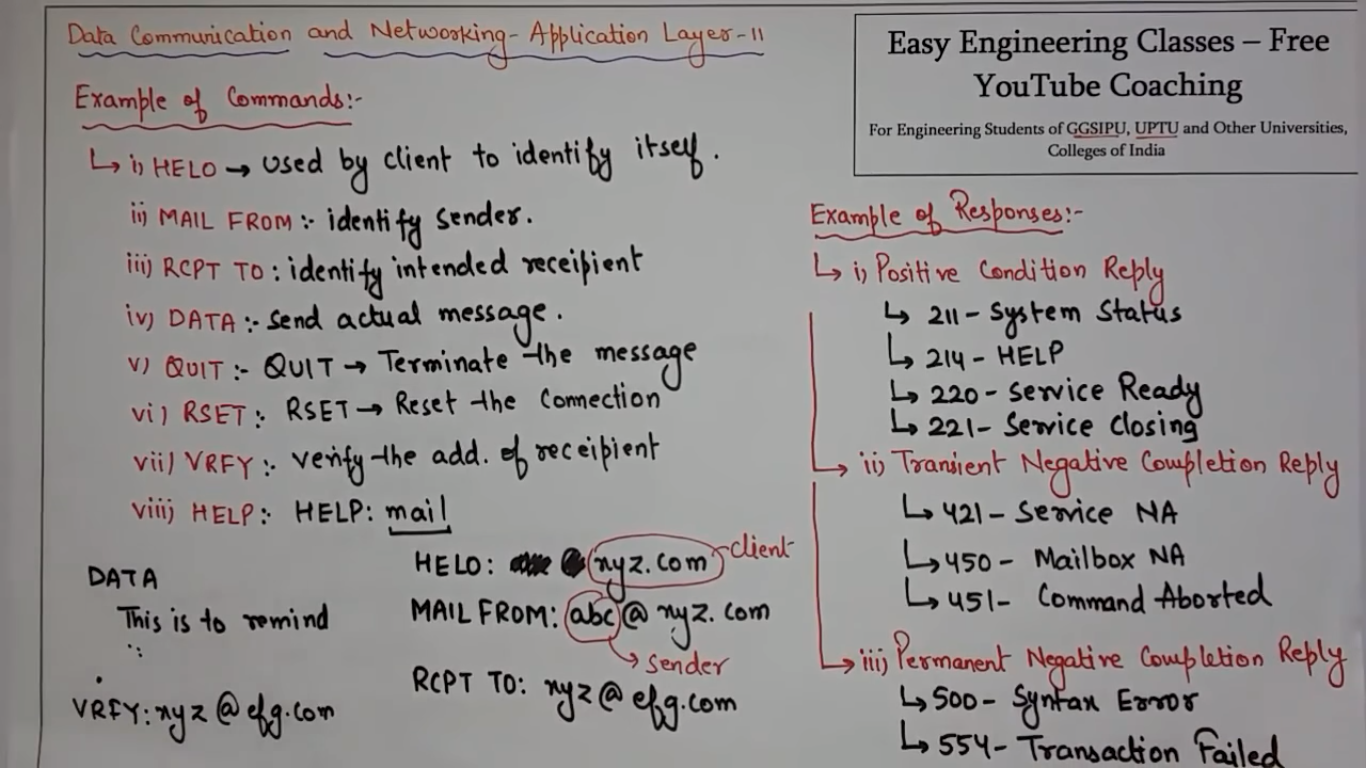 Data Communication and Networking - Application Layer - II
Easy Engineering Classes – Free
YouTube Coaching
For Engineering Students of GGSIPU, UPTU and Other Universities,
Colleges of India
Example of Commands:-
↳ i) HELO → used by client to identify itself.
ii) MAIL FROM :- identify sender.
iii) RCPT TO : identify intended receipient
iv) DATA :- send actual message.
v) QUIT :- QUIT → Terminate the message
vi) RSET :- RSET → Reset the Connection
vii) VRFY :- verify the add. of receipient
viii) HELP :- HELP: mail
DATA
This is to remind
VRFY: xyz@efg.com
HELO: xyz.com client
MAIL FROM: abc@xyz.com
sender
RCPT TO: xyz@efg.com
Example of Responses:-
↳ i) Positive Condition Reply
↳ 211 - System Status
↳ 214 - HELP
↳ 220 - Service Ready
↳ 221 - Service Closing
→ ii) Transient Negative Completion Reply
↳ 421 - Service NA
↳ 450 - Mailbox NA
↳ 451 - Command Aborted
→ iii) Permanent Negative Completion Reply
↳ 500 - Syntax Error
↳ 554 - Transaction Failed